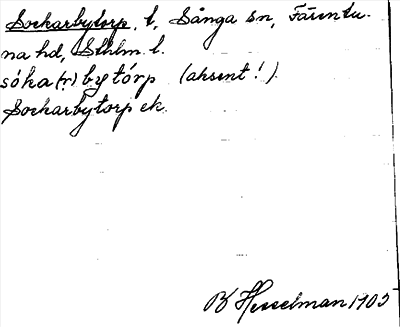 Sockarbytorp, t, Sånga sn, Färentu-
na hd, Sthlm l.
sóka(r)bytórp (aksent!).
Sockarbytorp ek.
B Hesselman 1905